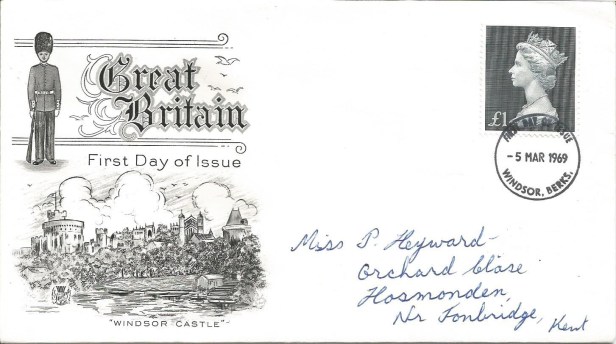 Great
Britain
First Day of Issue
"WINDSOR CASTLE"
£1
FIRST DAY OF ISSUE
-5 MAR 1969
WINDSOR, BERKS.
Miss P. Heyward-
Orchard Close
Hosmonden,
Nr Tonbridge,
Kent